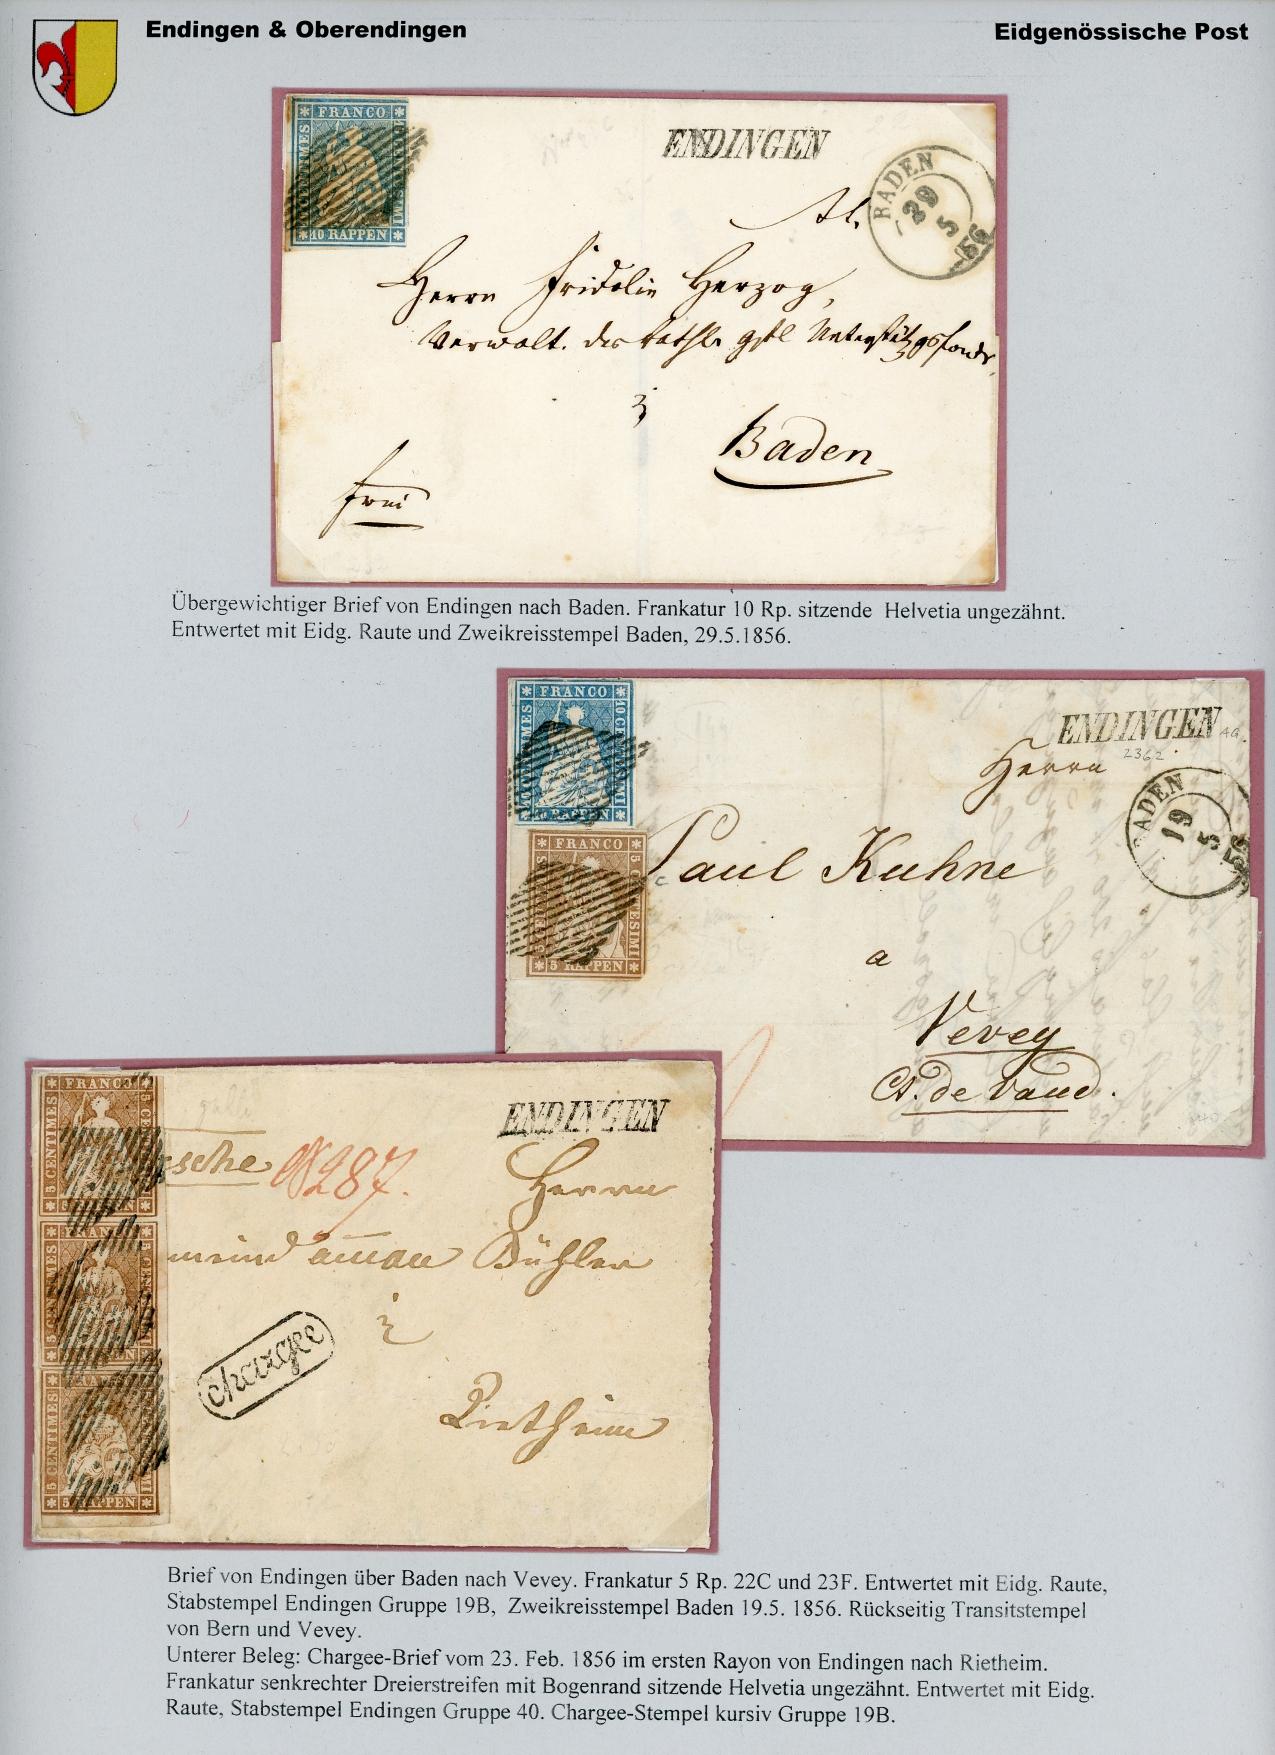 Endingen & Oberendingen
Eidgenössische Post
FRANCO
10 RAPPEN
ENDINGEN
BADEN
29
5
56
Herrn Fridolin Herzog,
Verwalt. des kathl. gstl Unterstützgsfonds,
z
Baden
frei
Übergewichtiger Brief von Endingen nach Baden. Frankatur 10 Rp. sitzende Helvetia ungezähnt.
Entwertet mit Eidg. Raute und Zweikreisstempel Baden, 29.5.1856.
FRANCO
10 RAPPEN
FRANCO
5 RAPPEN
ENDINGEN
AG.
2362
BADEN
19
5
56
Herrn
Paul Kuhne
a
Vevey
Ct. de Vaud.
FRANCO
5 CENTIMES
5 CENTIMES
5 CENTIMES
5 RAPPEN
ENDINGEN
sche
287.
Herrn
meindammann Bühler
in
Rietheim
Chargee
Brief von Endingen über Baden nach Vevey. Frankatur 5 Rp. 22C und 23F. Entwertet mit Eidg. Raute,
Stabstempel Endingen Gruppe 19B, Zweikreisstempel Baden 19.5. 1856. Rückseitig Transitstempel
von Bern und Vevey.
Unterer Beleg: Chargee-Brief vom 23. Feb. 1856 im ersten Rayon von Endingen nach Rietheim.
Frankatur senkrechter Dreierstreifen mit Bogenrand sitzende Helvetia ungezähnt. Entwertet mit Eidg.
Raute, Stabstempel Endingen Gruppe 40. Chargee-Stempel kursiv Gruppe 19B.